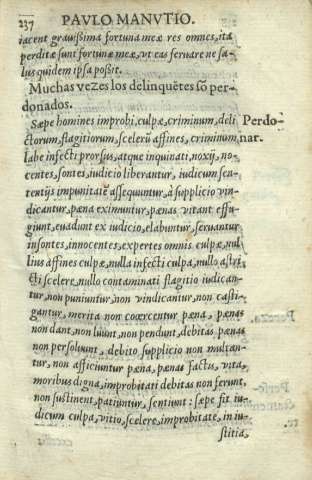 237 PAVLO MANVTIO.
iacent grauissima fortuna meæ res omnes, ita
perditæ sunt fortunæ meæ, vt eas seruare ne sa-
lus quidem ipsa possit.
Muchas vezes los delinquētes sō per-
donados.
Sæpe homines improbi, culpæ, criminum, deli Perdo-
ctorum, flagitiorum, scelerū affines, criminum nar.
labe infecti prorsus, atque inquinati, noxij, no-
centes, sontes, iudicio liberantur, iudicum sen-
tentijs impunitatē assequuntur, à supplicio vin-
dicantur, pœna eximuntur, pœnas vitant effu-
giunt, euadunt ex iudicio, elabuntur, seruantur
insontes, innocentes, expertes omnis culpæ, nul
lius affines culpæ, nulla infecti culpa, nullo astri
cti scelere, nullo contaminati flagitio iudican-
tur, non puniuntur, non vindicantur, non casti-
gantur, merita non coercentur pœna, pœnas
non dant, non luunt, non pendunt, debitas pœnas
non persoluunt, debito supplicio non multan-
tur, non afficiuntur pœna, pœnas factis, vita,
moribus digna, improbitati debitas non ferunt,
non sustinent, patiuntur, sentiunt: sæpe fit iu-
dicum culpa, vitio, scelere, improbitate, in iu-
stitia,